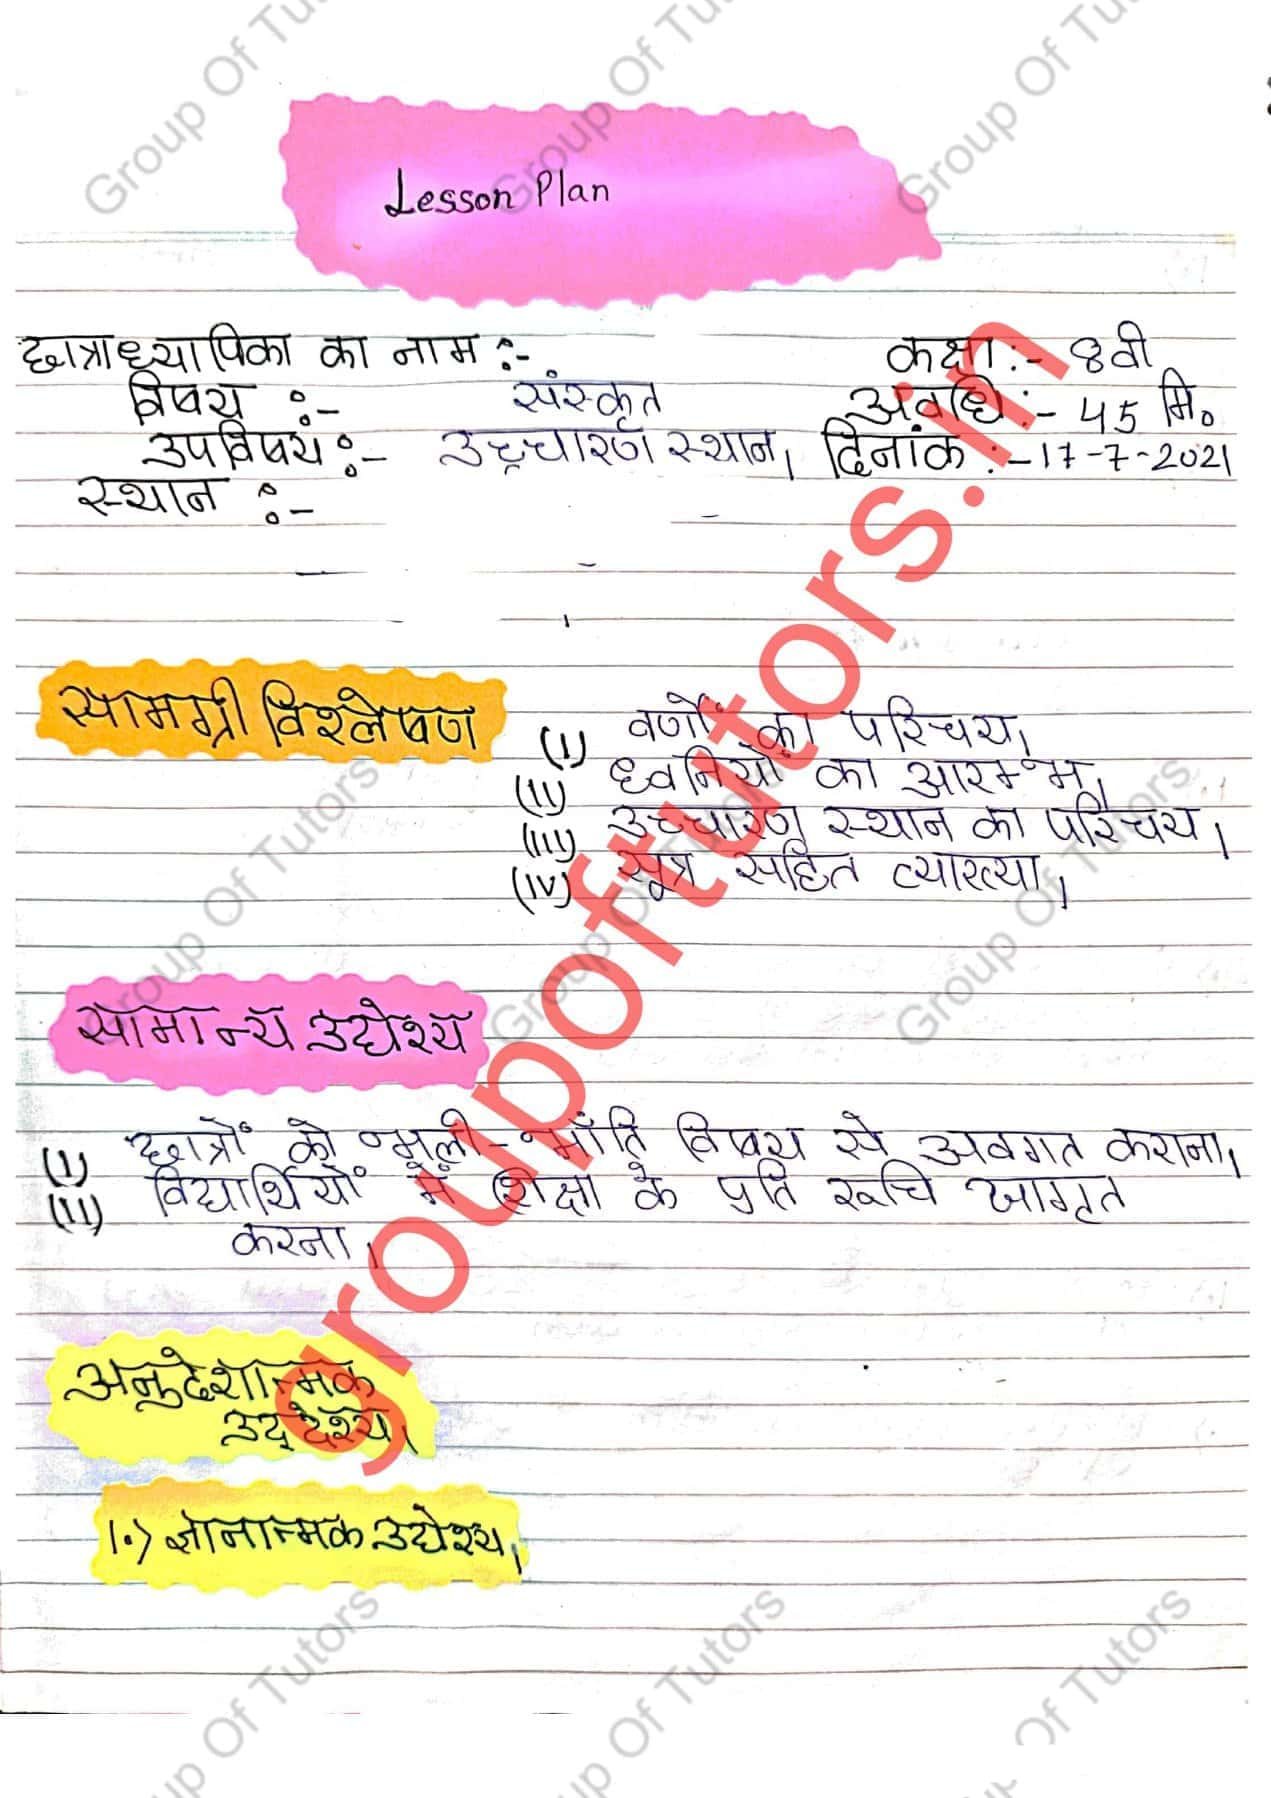 Lesson Plan
छात्राध्यापिका का नाम :- कक्षा :- 8वी
विषय :- संस्कृत अवधि :- 45 मि०
उपविषय :- उच्चारण स्थान। दिनांक :- 17-7-2021
स्थान :-
सामग्री विश्लेषण
(I) वर्णों का परिचय।
(II) ध्वनियों का आरम्भ।
(III) उच्चारण स्थान का परिचय।
(IV) सूत्र सहित व्याख्या।
सामान्य उद्येश्य
(I) छात्रों को भली-भाँति विषय से अवगत कराना।
(II) विद्यार्थियों में शिक्षा के प्रति रूचि जागृत
करना।
अनुदेशात्मक
उद्देश्य।
1.) ज्ञानात्मक उद्येश्य।
groupoftutors.in
Group Of Tutors